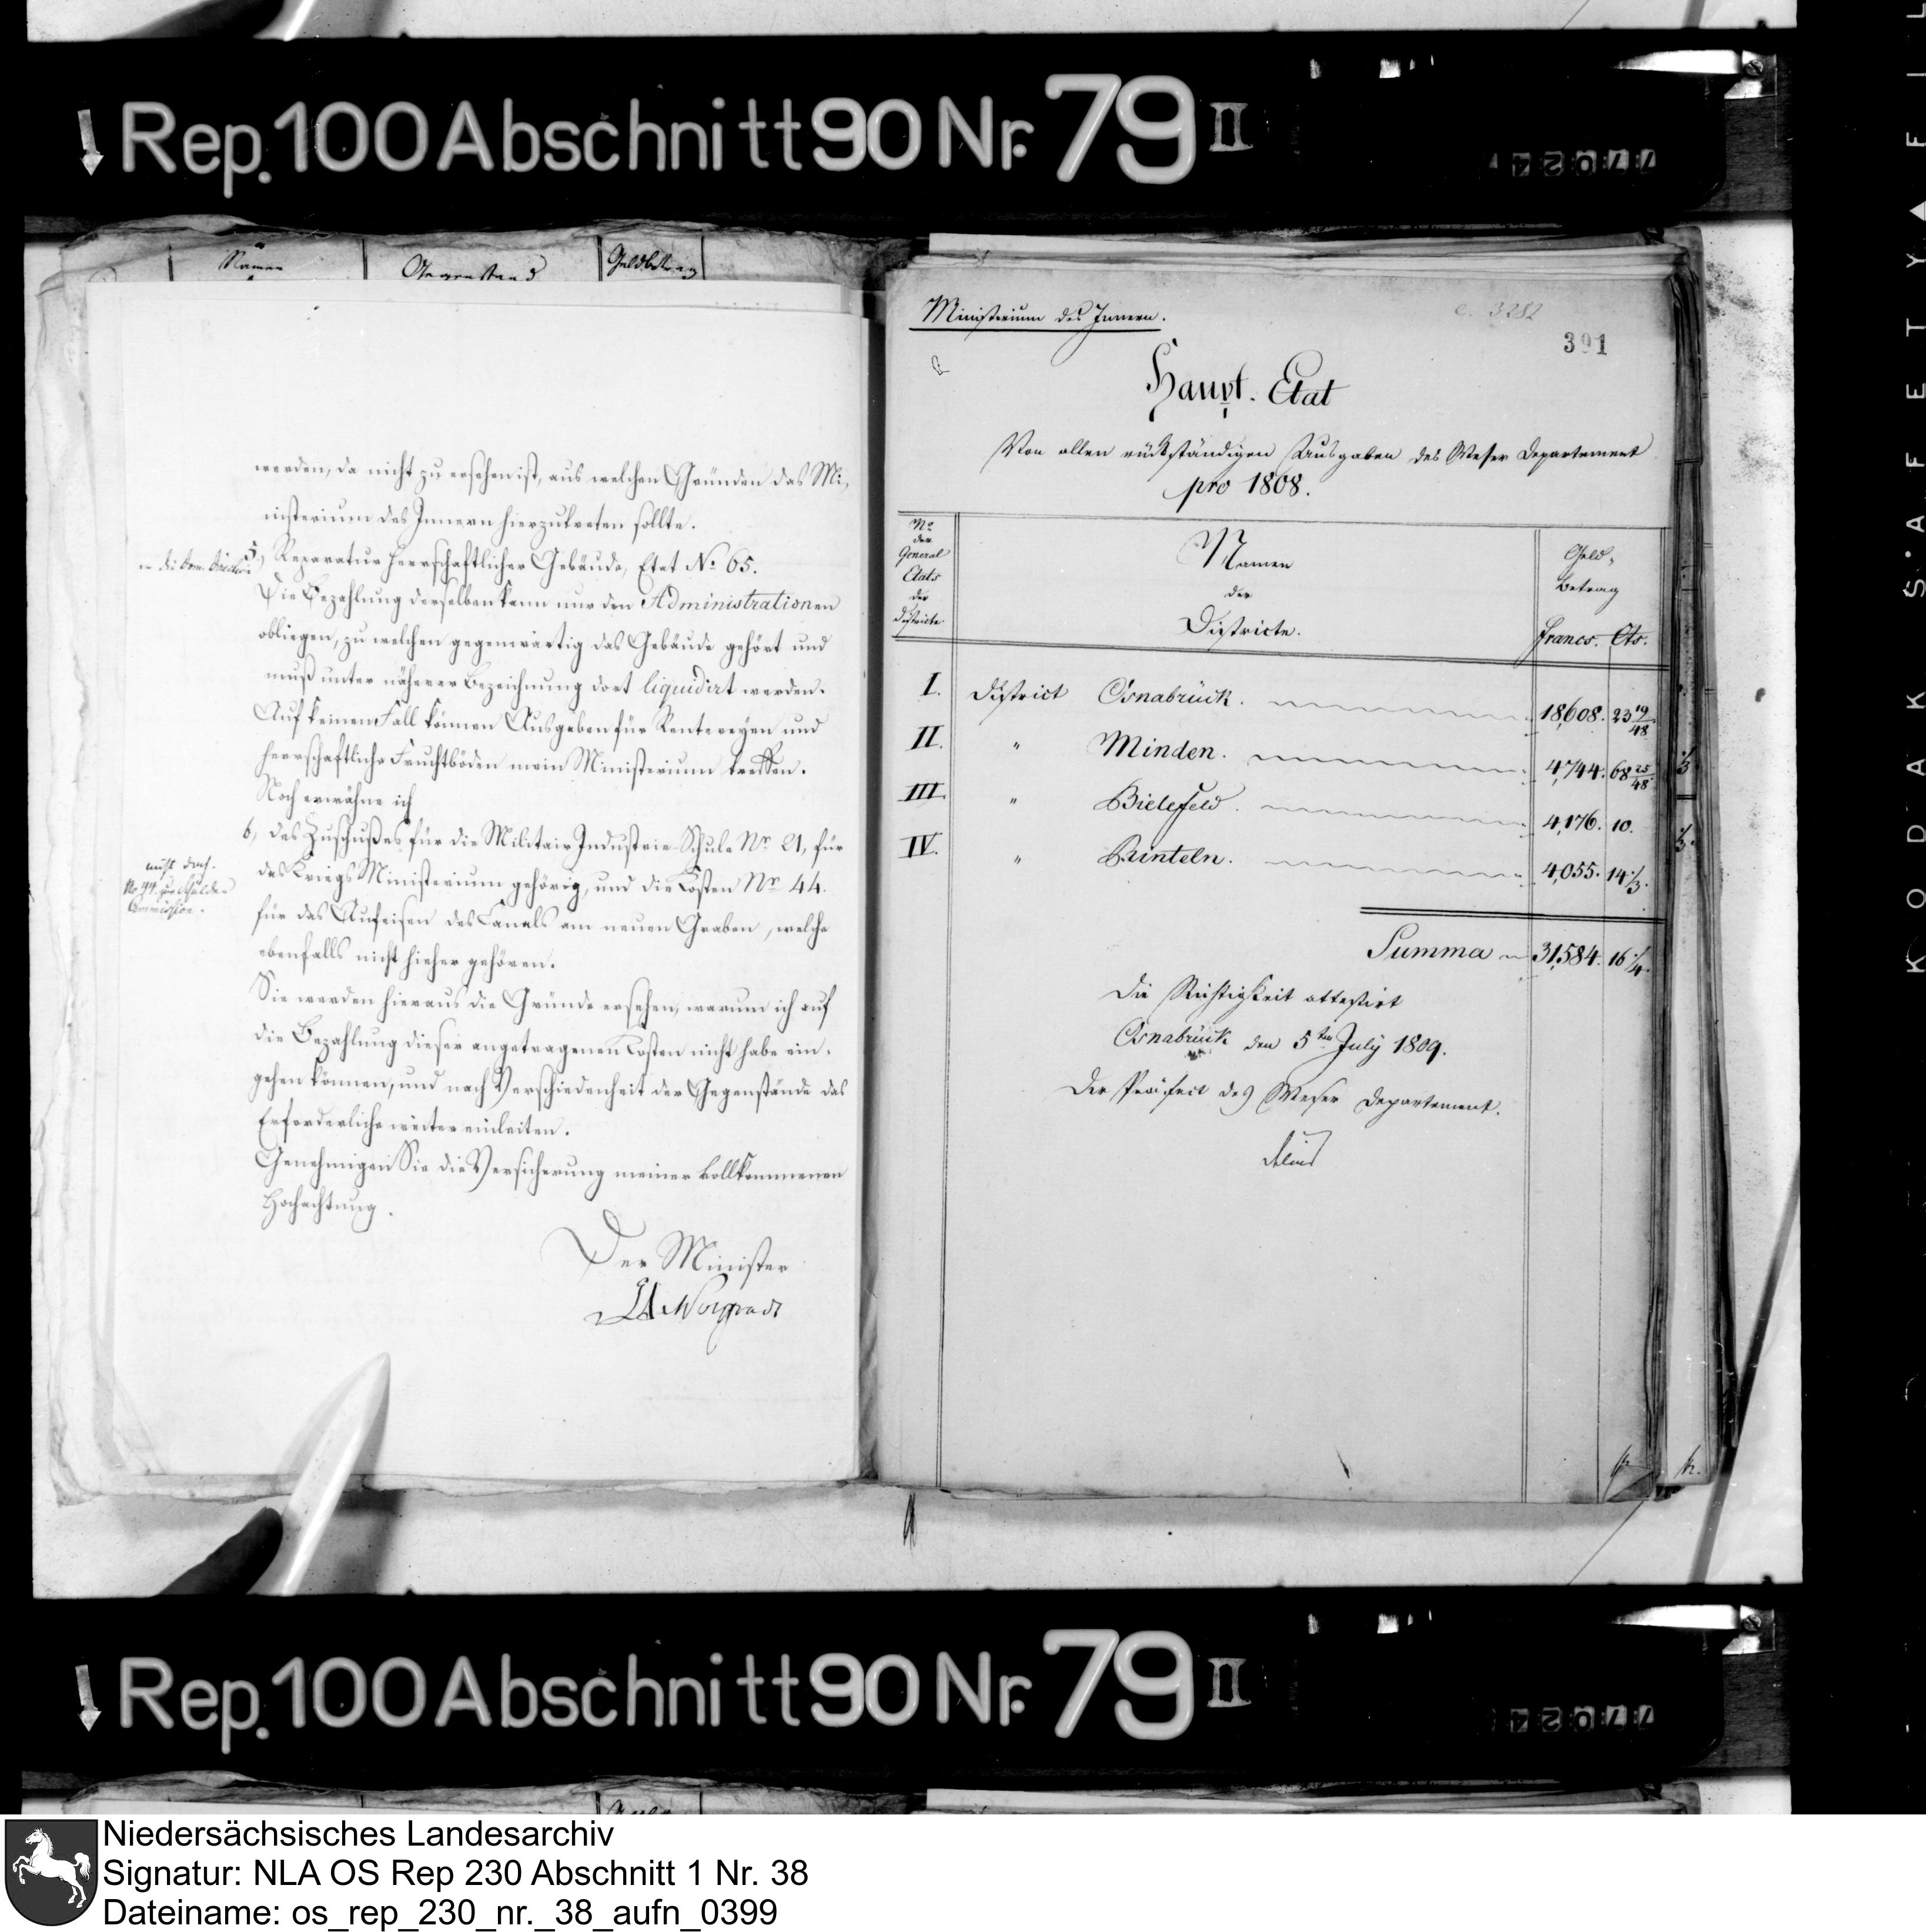 Rep. 100 Abschnitt 90 Nr. 79 II
77024
Namen
Gegenstand
Geldbetrag
werden, da nicht zu ersehen ist, aus welchen Gründen das Mi-
nisterium des Innern hierzutreten sollte.
5, Reparatur herrschaftlicher Gebäude, Etat No 65.
Die Bezahlung derselben kann nur den Administrationen
obliegen, zu welchen gegenwärtig das Gebäude gehört und
muß unter näherer Bezeichnung dort liquidirt werden.
Auf keinen Fall können Ausgaben für Rentereyen und
herrschaftliche Fruchtböden mein Ministerium treffen.
Noch erwähne ich
6, des Zuschußes für die Militair Industrie-Schule Nr 21, für
das Kriegs Ministerium gehörig, und die Costen Nr 44.
für das Aufeisen des Canals am neuen Graben, welche
ebenfalls nicht hieher gehören.
nicht doch.
No 44. zur Schulden
Commission.
Sie werden hieraus die Gründe ersehen, warum ich auf
die Bezahlung dieser angetragenen Costen nicht habe ein-
gehen können, und nach Verschiedenheit der Gegenstände das
Erforderliche weiter einleiten.
Genehmigen Sie die Versicherung meiner vollkommenen
Hochachtung.
Der Minister
Ministerium des Innern.
C. 3282
391
Haupt-Etat
Von allen rückständigen Ausgaben des Weser Departement
pro 1808.
No
der
General
Etats
der
Districte
Namen
der
Districte.
Geld-
Betrag
francs. Cts.
I. District Osnabrück. 18,608. 23 19/48
II. " Minden. 4,744. 68 25/48
III. " Bielefeld. 4,176. 10.
IV. " Rinteln. 4,055. 14 1/3.
Summa 31,584. 16 1/4.
Die Richtigkeit attestirt
Osnabrück den 5ten July 1809.
Der Präfect des Weser Departement.
Delius
KODAK S'AFETY FIL
Rep. 100 Abschnitt 90 Nr. 79 II
77024
Niedersächsisches Landesarchiv
Signatur: NLA OS Rep 230 Abschnitt 1 Nr. 38
Dateiname: os_rep_230_nr._38_aufn_0399